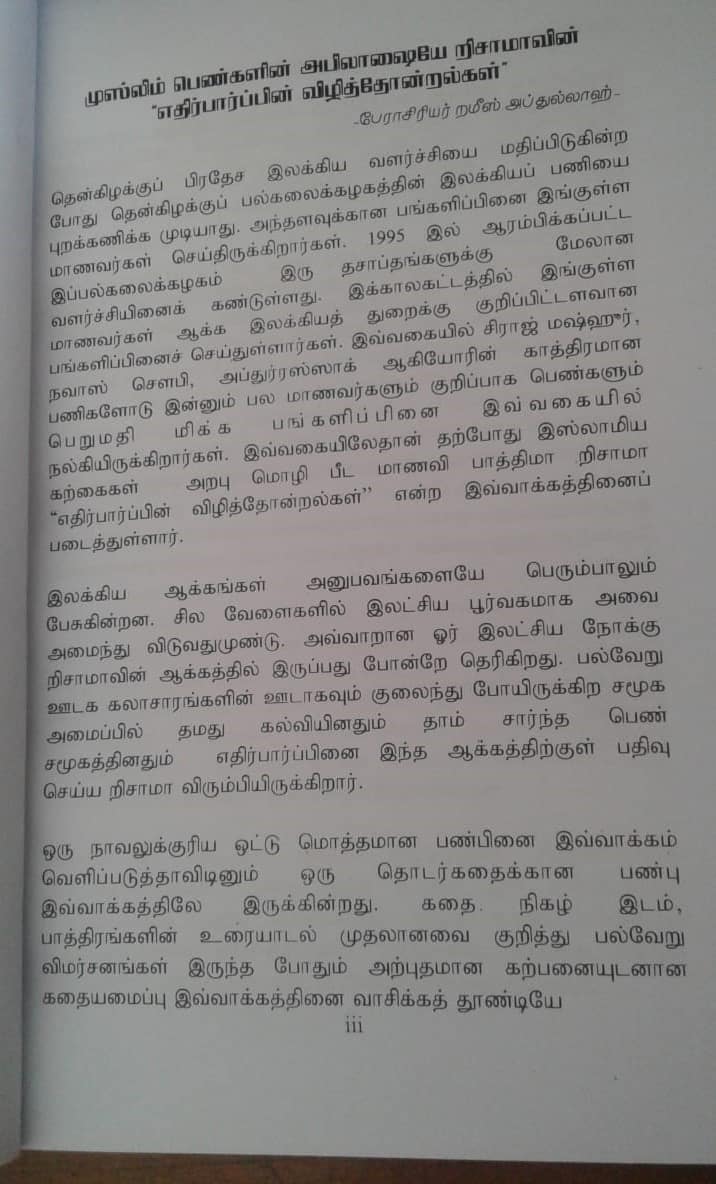 முஸ்லிம் பெண்களின் அபிலாஷையே றிசாமாவின்
"எதிர்பார்ப்பின் விழித்தோன்றல்கள்"
-பேராசிரியர் றமீஸ் அப்துல்லாஹ்-
தென்கிழக்குப் பிரதேச இலக்கிய வளர்ச்சியை மதிப்பிடுகின்ற
போது தென்கிழக்குப் பல்கலைக்கழகத்தின் இலக்கியப் பணியை
புறக்கணிக்க முடியாது. அந்தளவுக்கான பங்களிப்பினை இங்குள்ள
மாணவர்கள் செய்திருக்கிறார்கள். 1995 இல் ஆரம்பிக்கப்பட்ட
இப்பல்கலைக்கழகம் இரு தசாப்தங்களுக்கு மேலான
வளர்ச்சியினைக் கண்டுள்ளது. இக்காலகட்டத்தில் இங்குள்ள
மாணவர்கள் ஆக்க இலக்கியத் துறைக்கு குறிப்பிட்டளவான
பங்களிப்பினைச் செய்துள்ளார்கள். இவ்வகையில் சிராஜ் மஷ்ஹூர்,
நவாஸ் சௌபி, அப்துர்ரஸ்ஸாக் ஆகியோரின் காத்திரமான
பணிகளோடு இன்னும் பல மாணவர்களும் குறிப்பாக பெண்களும்
பெறுமதி மிக்க பங்களிப்பினை இவ்வகையில்
நல்கியிருக்கிறார்கள். இவ்வகையிலேதான் தற்போது இஸ்லாமிய
கற்கைகள் அறபு மொழி பீட மாணவி பாத்திமா றிசாமா
"எதிர்பார்ப்பின் விழித்தோன்றல்கள்" என்ற இவ்வாக்கத்தினைப்
படைத்துள்ளார்.
இலக்கிய ஆக்கங்கள் அனுபவங்களையே பெரும்பாலும்
பேசுகின்றன. சில வேளைகளில் இலட்சிய பூர்வகமாக அவை
அமைந்து விடுவதுமுண்டு. அவ்வாறான ஓர் இலட்சிய நோக்கு
றிசாமாவின் ஆக்கத்தில் இருப்பது போன்றே தெரிகிறது. பல்வேறு
ஊடக கலாசாரங்களின் ஊடாகவும் குலைந்து போயிருக்கிற சமூக
அமைப்பில் தமது கல்வியினதும் தாம் சார்ந்த பெண்
சமூகத்தினதும் எதிர்பார்ப்பினை இந்த ஆக்கத்திற்குள் பதிவு
செய்ய றிசாமா விரும்பியிருக்கிறார்.
ஒரு நாவலுக்குரிய ஒட்டு மொத்தமான பண்பினை இவ்வாக்கம்
வெளிப்படுத்தாவிடினும் ஒரு தொடர்கதைக்கான பண்பு
இவ்வாக்கத்திலே இருக்கின்றது. கதை நிகழ் இடம்,
பாத்திரங்களின் உரையாடல் முதலானவை குறித்து பல்வேறு
விமர்சனங்கள் இருந்த போதும் அற்புதமான கற்பனையுடனான
கதையமைப்பு இவ்வாக்கத்தினை வாசிக்கத் தூண்டியே
iii